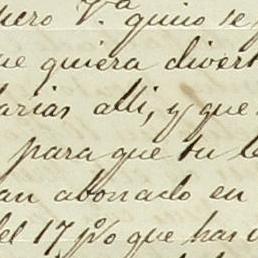 pero V.ª quiso se
ue quiera divert
darias alli, y que
para que tu le
an abonado en
del 17 p% que has d